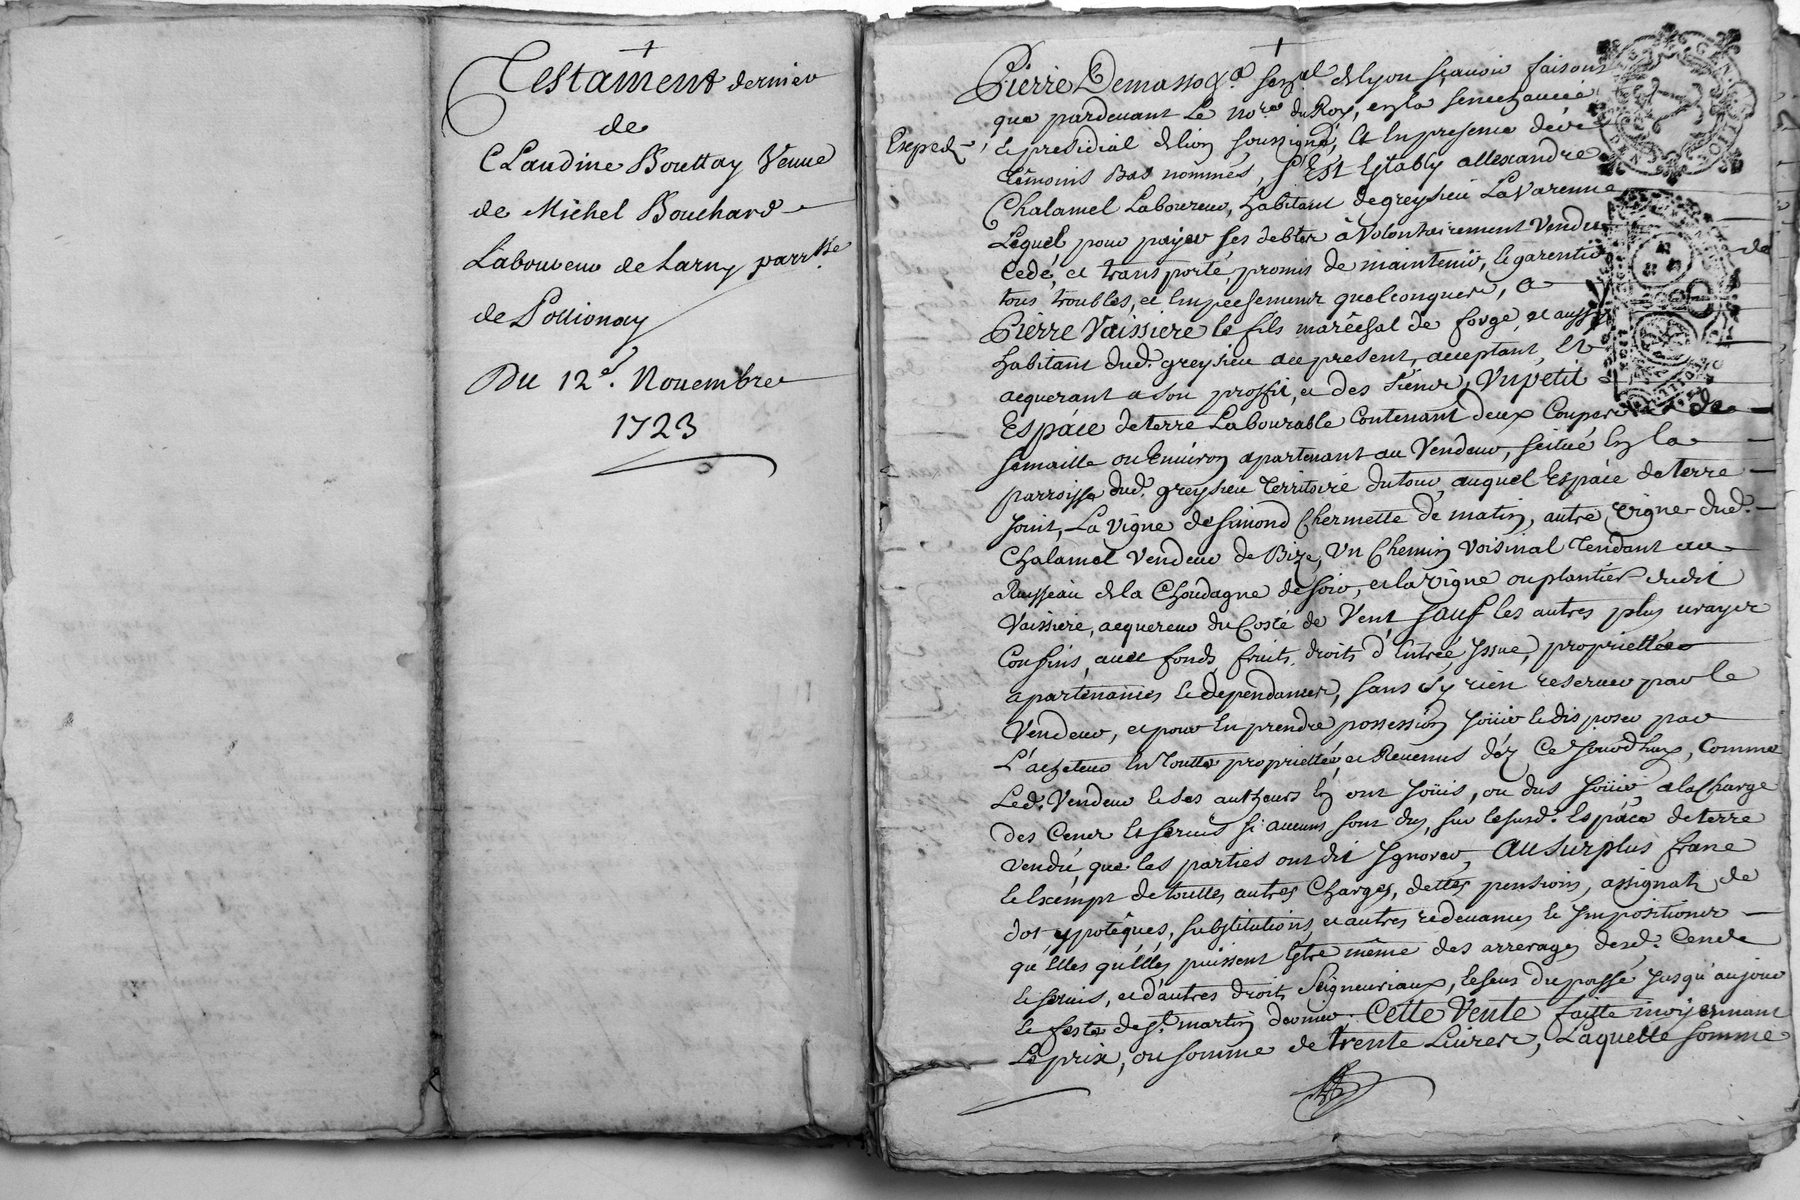 Testament dernier
de
Claudine Bouttay Veuue
de Michel Bouchard
Laboureur de Larny parr.sse
de Pollionay
Du 12.e Nouembre
1723
Expedi.
Pierre Demasso &.a sen.al de lyon sçauoir faisons
que pardeuant le no.re du Roy, en la senechaucée
et presidial de lion soussigné, et En presence des
témoins Bas nommés, s'Est Estably allexandre
Chalamel Laboureur, habitant de greysieu La Varenne
Lequel pour payer ses debtes à Volontairement Vendu
Cedé, et transporté, promis de maintenir, et garentir de
tous troubles, et Empeschements quelconques, a
Pierre Vaissiere le fils maréchal de forge, et aussy
habitant dud. greysieu acce present, acceptant, Et
acquerant a son proffit, et des siens, Un petit
Espace de terre Labourable Contenant deux Coupes de
semaille ou Enuiron apartenant au Vendeur, scitué En la
parroisse dud. greysieu Territoire du tour, auquel Espace de terre
Joint, La Vigne de simond Chermette de matin, autre Vigne dud.
Chalamel Vendeur de Bize, Un Chemin Voisinal Tendant au
Ruisseau de la Choudagne de soir, et la Vigne ou plantier dudit
Vaissiere, acquereur du Costé de Vent, sauf les autres plus vrayes
Confins, auec fonds, fruits, droits d'Entrée, Issue, proprietées
apartenances et dependances, sans s'y rien reseruer par le
Vendeur, et pour En prendre possession Joüir et disposer par
L'acheteur En Toutte proprietté, et Reuenus déz Ce Jourdhuy, Comme
Led. Vendeur et ses autheurs En ont Joüis, ou dus Joüir, a la Charge
des Cens et seruis si aucuns sont dus, sur le susd. Espace de terre
vendu, que les parties ont dit Ignorer, Au surplus franc
et Exempt de touttes autres Charges, dettes, pensions, assignats de
dot, ypotêques, substitutions, et autres redeuances et Impositions
qu'Elles qu'Elles puissent Estre même des arrerages desd. Cens
et seruis, et d'autres droits Seigneuriaux, le tous du passé Jusqu'au jour
et feste de s.t martin dernier. Cette Vente faitte moyennant
Le prix, ou somme de trente Liures, Laquelle somme